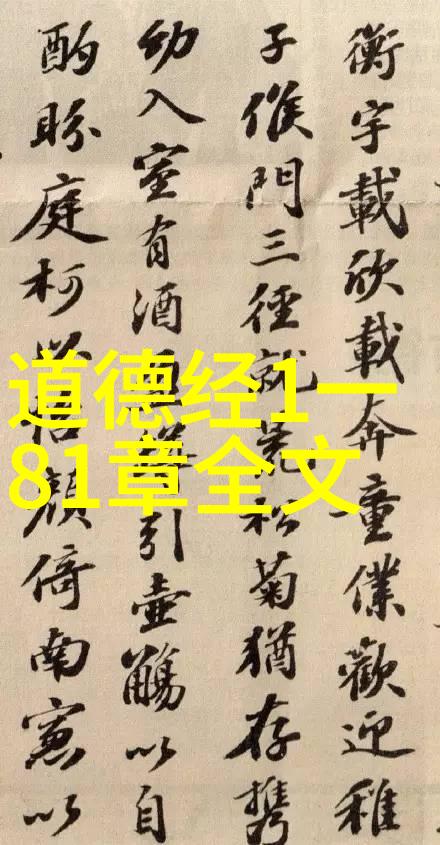 衡宇載欣載奔童僕歡迎稚
子候門三徑就荒松菊猶存携
幼入室有酒盈樽引壺觴以自
酌眄庭柯以怡顔倚南窓以
道德经1一
81章全文